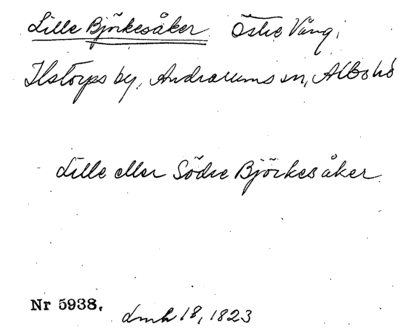 Lille Björkesåker Östre Vång,
Ilstorps by, Andrarums sn, Albo hd
Lille eller Södre Björkesåker
Nr 5938, lmh 18, 1823